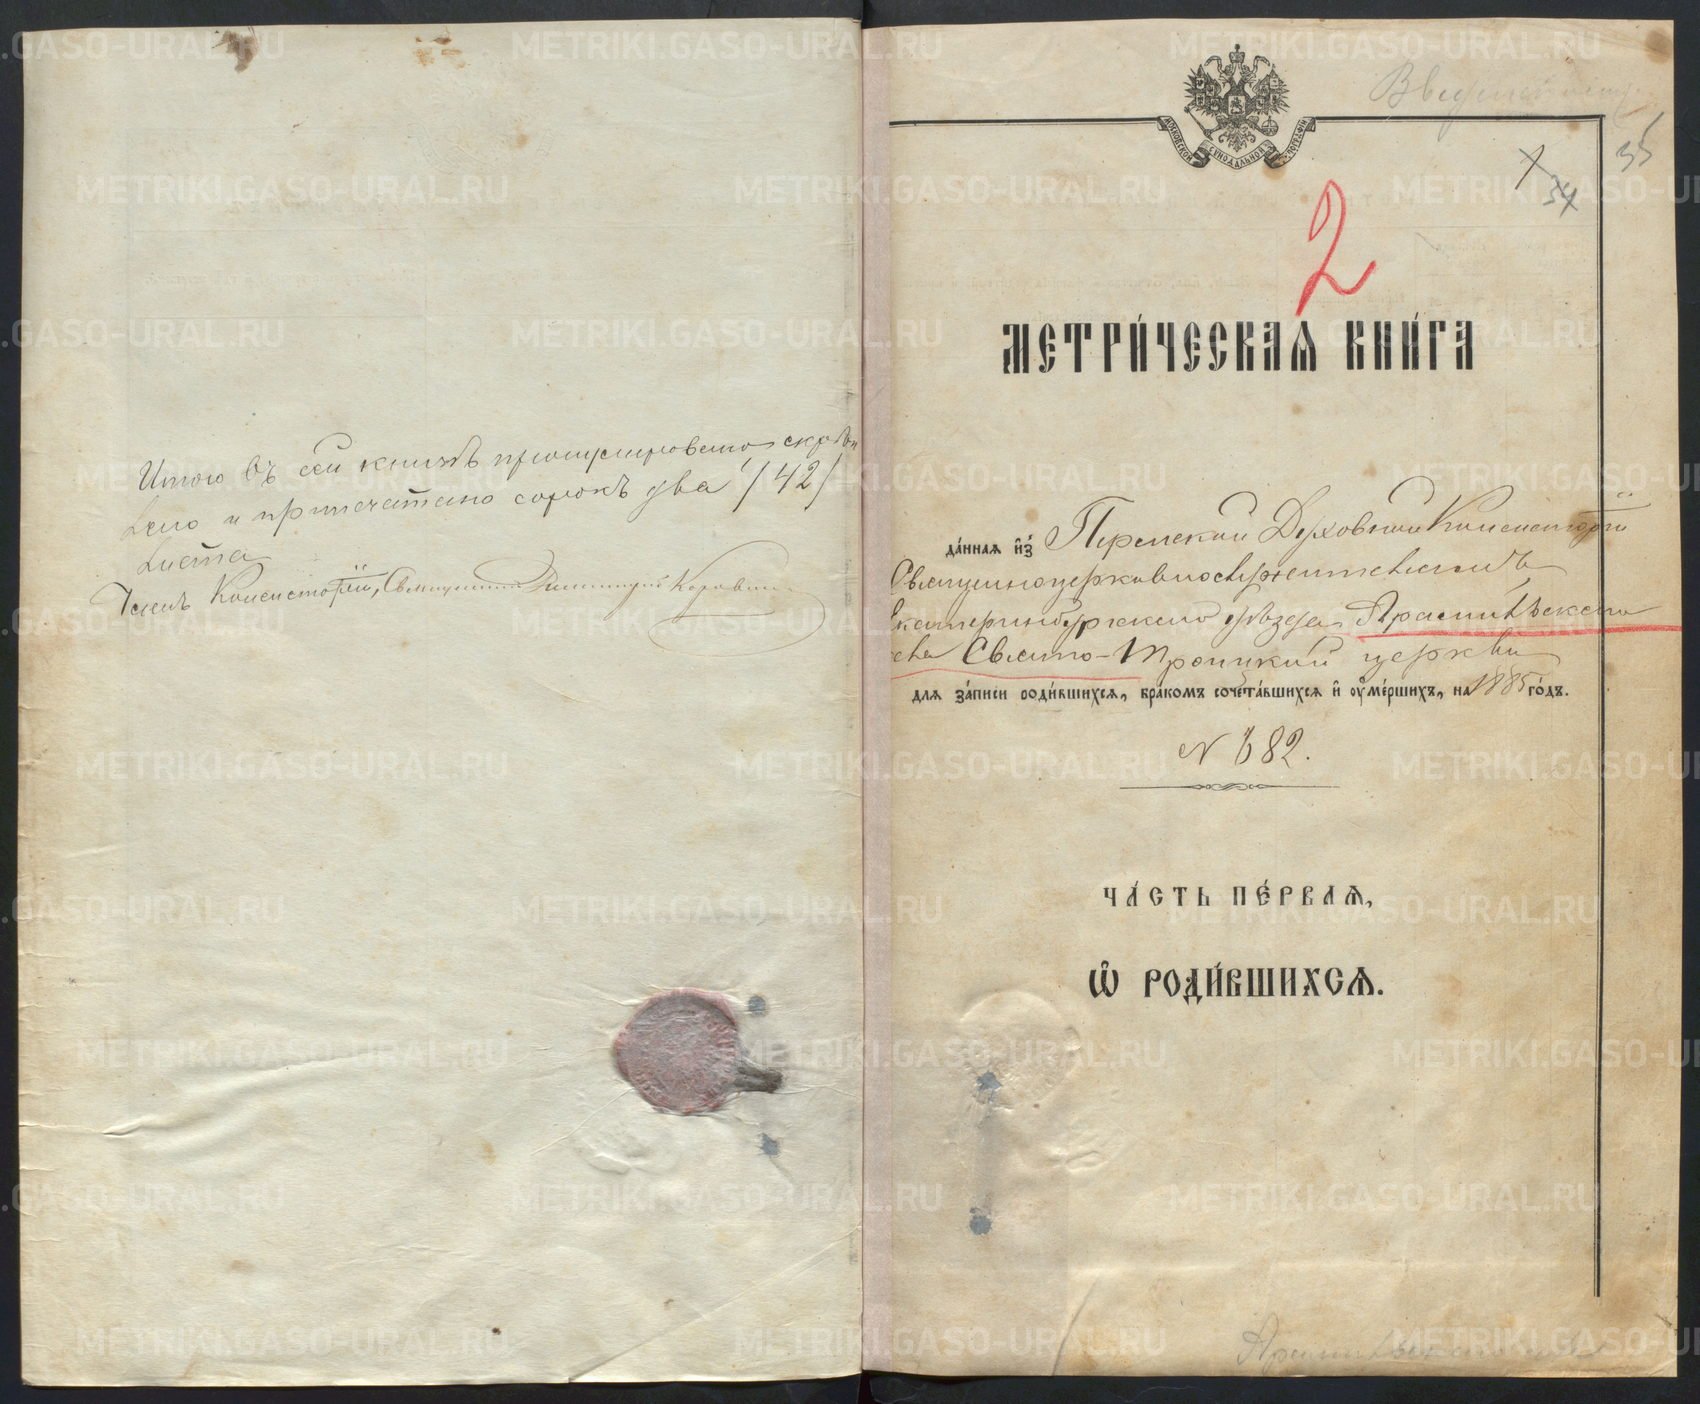 Итого въ сей книгѣ пронумеровано, скрѣп
лено и припечатано сорокъ два /42/
листа
Членъ Консисторіи, Священникъ Димитрій
МОСКОВСКОЙ СѴНОДАЛЬНОЙ ТИПОГРАФІИ
35
1
34
2
МЕТРИ́ЧЕСКАѦ КНИ́ГА
да́ннаѧ и҆з̾ Пермской Духовной Консисторіи
Священноцерковнослужителямъ
Екатеринбургскаго уѣзда Арамильскаго
Свято-Троицкой церкви
для за́писи роди́вшихсѧ, бра́комъ сочета́вшихсѧ и҆ ᲂу҆ме́ршихъ, на 1885 го́дъ.
№ 682.
ЧА́СТЬ ПЕ́РВАѦ,
Ѽ РОДИ́ВШИХСѦ.
METRIKI.GASO-URAL.RU